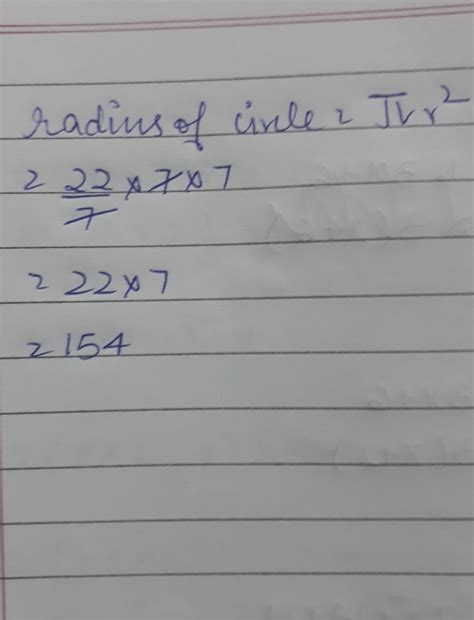 radius of circle = πr²
= 22/7 × 7 × 7
= 22×7
= 154